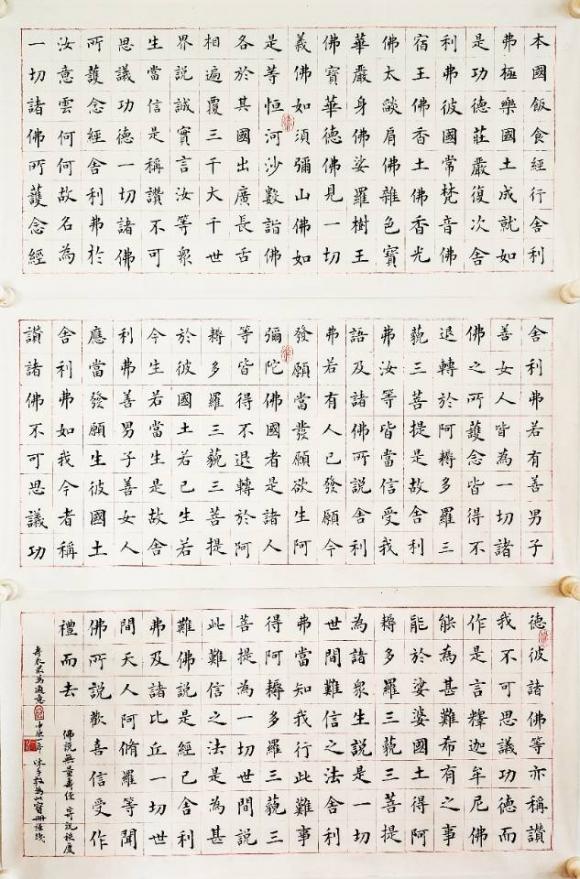 本國飯食經行舍利
弗極樂國土成就如
是功德莊嚴復次舍
利弗彼國常梵音佛
宿王佛香土佛香光
佛太燄肩佛雜色寶
華嚴身佛娑羅樹王
佛寶華德佛見一切
義佛如須彌山佛如
是等恒河沙數諧佛
各於其國出廣長舌
相遍覆三千大千世
界說誠實言汝等眾
生當信是稱讚不可
思議功德一切諸佛
所護念經舍利弗於
汝意雲何何故名為
一切諸佛所護念經
舍利弗若有善男子
善女人皆為一切諸
佛之所護念皆得不
退轉於阿耨多羅三
藐三菩提是故舍利
弗汝等皆當信受我
語及諸佛所說舍利
弗若有人已發願今
發願當發願欲生阿
彌陀佛國者是諸人
等皆得不退轉於阿
耨多羅三藐三菩提
於彼國土若已生若
今生若當生是故舍
利弗善男子善女人
應當發願生彼國土
舍利弗如我今者稱
讚諸佛不可思議功
德彼諸佛等亦稱讚
我不可思議功德而
作是言釋迦牟尼佛
能為甚難希有之事
能於娑婆國土得阿
耨多羅三藐三菩提
為諸眾生說是一切
世間難信之法舍利
弗當知我行此難事
得阿耨多羅三藐三
菩提為一切世間說
此難信之法是為甚
難佛說是經已舍利
弗及諸比丘一切世
間天人阿脩羅等聞
佛所說歡喜信受作
禮而去
佛說無量壽經